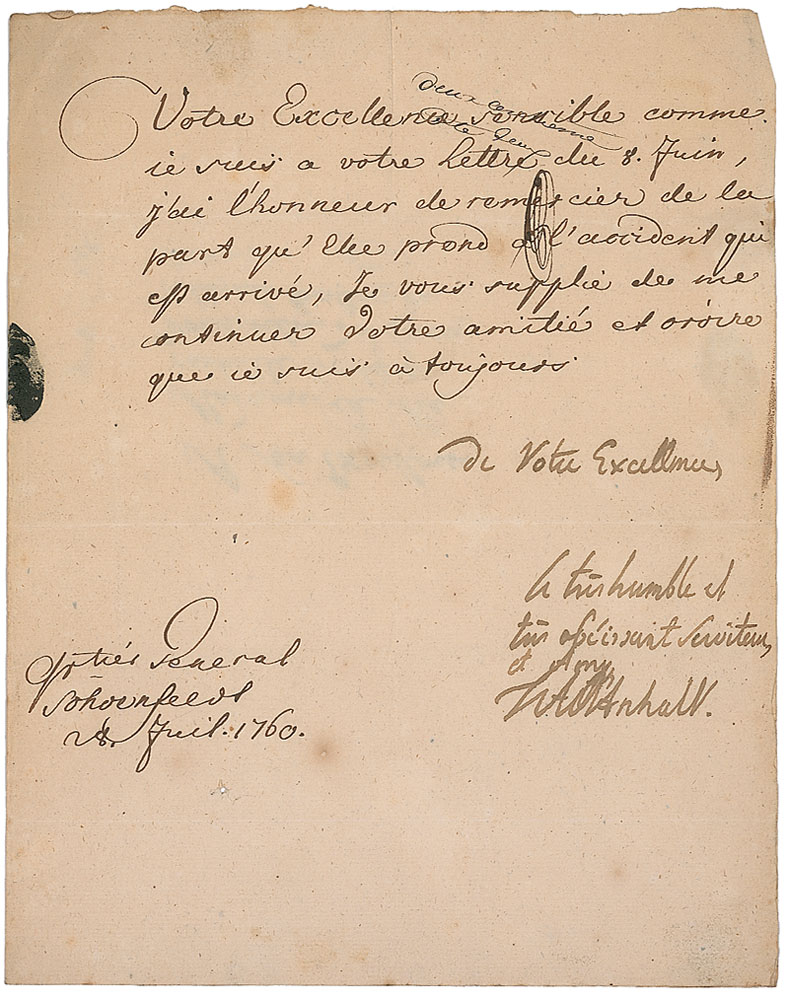 Votre Excellence sensible comme
ie suis a votre lettre du 8. Juin,
j'ai l'honneur de remercier de la
part qu'Elle prend à l'accident qui
est arrivé, Je vous supplie de me
continuer Votre amitié et croire
que ie suis à toujours
de Votre Excellence,
le tres humble et
tres obéissant Serviteur,
et amy
d'Anhalt.
General
Schoenfeldt
28. Juil. 1760.